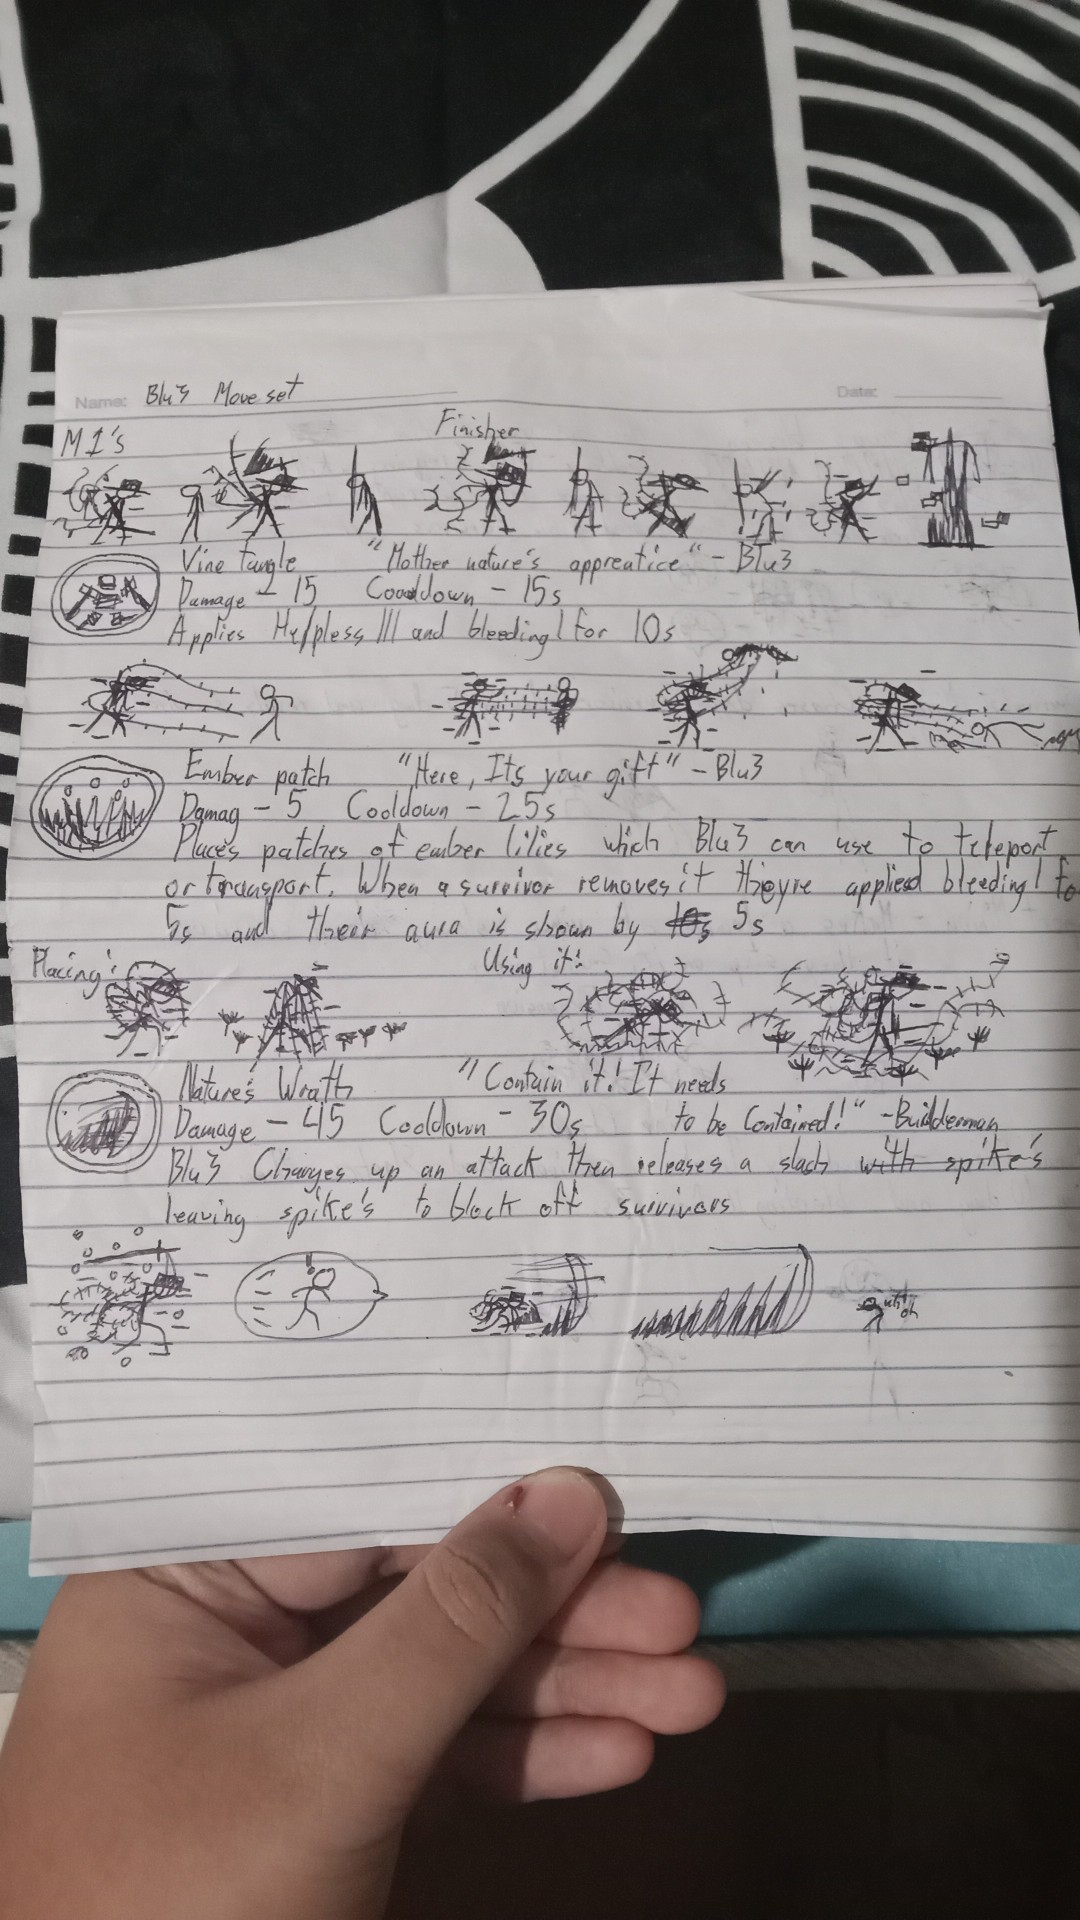 Name: Blu3 Moveset
Date:
M1's
Finisher
Vine Tangle "Mother nature's apprentice" - Blu3
Damage - 15 Cooldown - 15s
Applies Helpless III and bleeding I for 10s
Ember patch "Here, Its your gift" - Blu3
Damag - 5 Cooldown - 25s
Places patches of ember lilies which Blu3 can use to teleport
or transport. When a survivor removes it they're applied bleeding I fo
5s and their aura is shown by 10s 5s
Placing:
Using it:
Nature's Wrath "Contain it! It needs
Damage - 45 Cooldown - 30s to be Contained!" - Builderman
Blu3 Charges up an attack then releases a slash with spike's
leaving spike's to block off survivors
!
uh oh